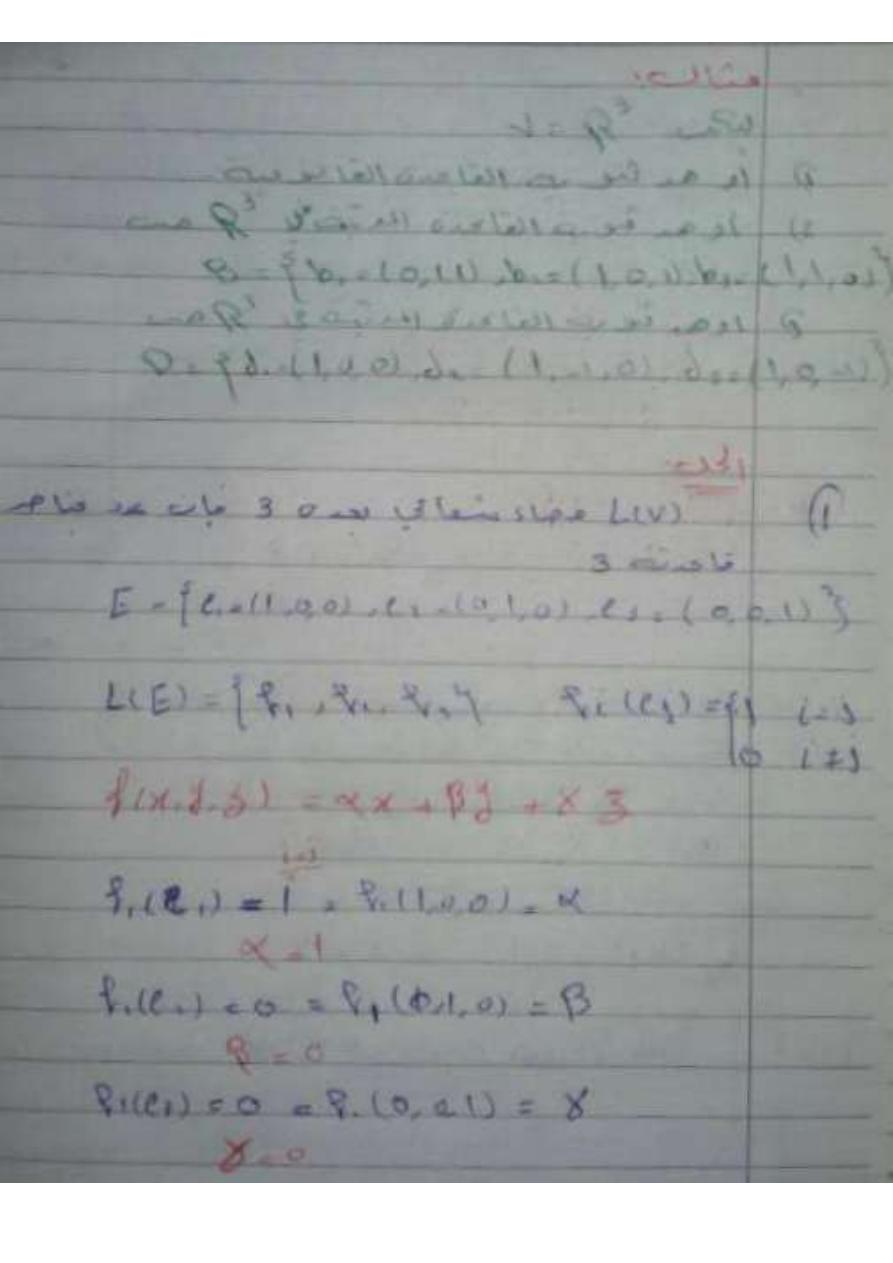 مثال:
ليكن V = R³
1) أوجد ثنوية القاعدة القانونية
2) أوجد ثنوية القاعدة R³
B = {b₁ = (0,1,1), b₂ = (1,0,1), b₃ = (1,1,0)}
3) أوجد ثنوية القاعدة R³
D = {d₁ = (1,1,0), d₂ = (1,-1,0), d₃ = (1,0,-1)}
الحل:
1) L(V) فضاء شعاعي بعده 3 فإن عدد عناصر
قاعدته 3
E = {e₁ = (1,0,0), e₂ = (0,1,0), e₃ = (0,0,1)}
L(E) = {f₁, f₂, f₃} fᵢ(eⱼ) = {1 i=j
0 i≠j
f(x,y,z) = αx + βy + γz
f₁(e₁) = 1 = f₁(1,0,0) = α
α = 1
f₁(e₂) = 0 = f₁(0,1,0) = β
β = 0
f₁(e₃) = 0 = f₁(0,0,1) = γ
γ = 0